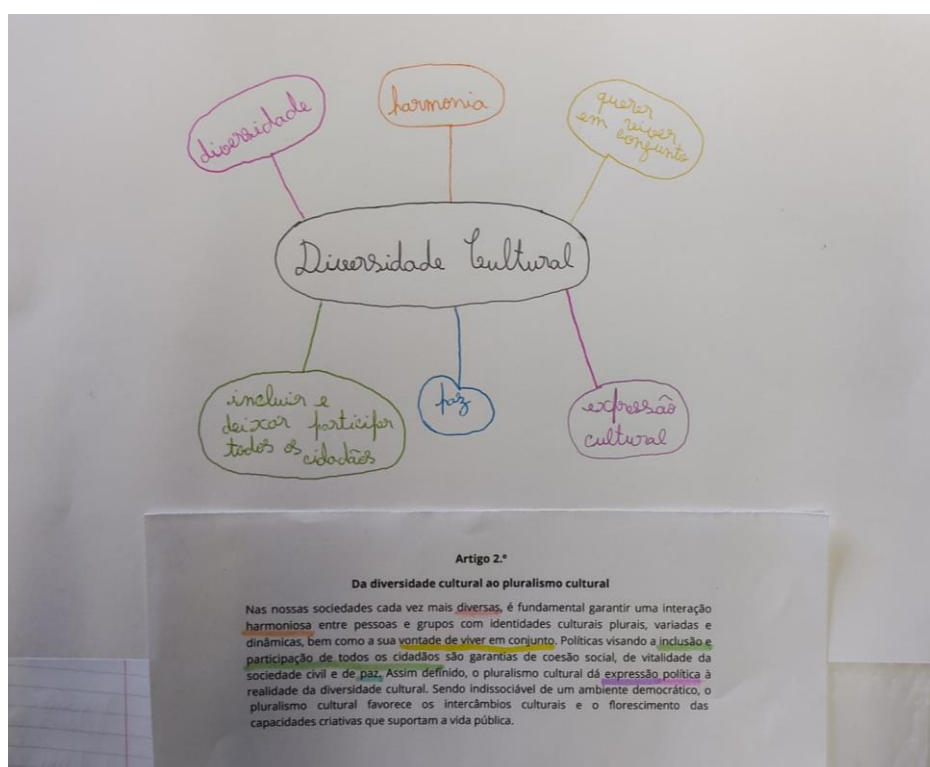 diversidade
harmonia
querer
em viver
conjunto
Diversidade Cultural
incluir e
deixar participar
todos os cidadãos
paz
expressão
cultural
Artigo 2.º
Da diversidade cultural ao pluralismo cultural
Nas nossas sociedades cada vez mais diversas, é fundamental garantir uma interação
harmoniosa entre pessoas e grupos com identidades culturais plurais, variadas e
dinâmicas, bem como a sua vontade de viver em conjunto. Políticas visando a inclusão e
participação de todos os cidadãos são garantias de coesão social, de vitalidade da
sociedade civil e de paz. Assim definido, o pluralismo cultural dá expressão política à
realidade da diversidade cultural. Sendo indissociável de um ambiente democrático, o
pluralismo cultural favorece os intercâmbios culturais e o florescimento das
capacidades criativas que suportam a vida pública.